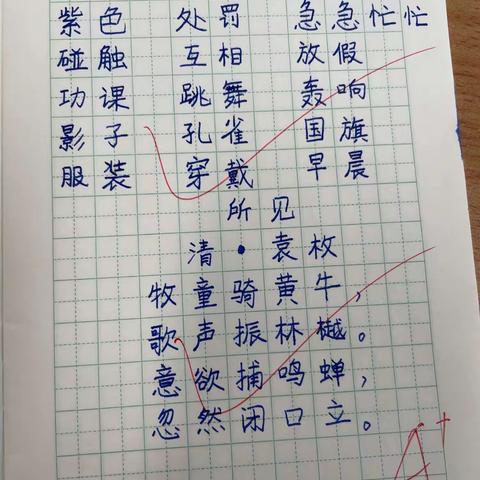 紫色 处罚 急急忙忙
碰触 互相 放假
功课 跳舞 轰响
影子 孔雀 国旗
服装 穿戴 早晨
所见
清·袁枚
牧童骑黄牛，
歌声振林樾。
意欲捕鸣蝉，
忽然闭口立。
A+